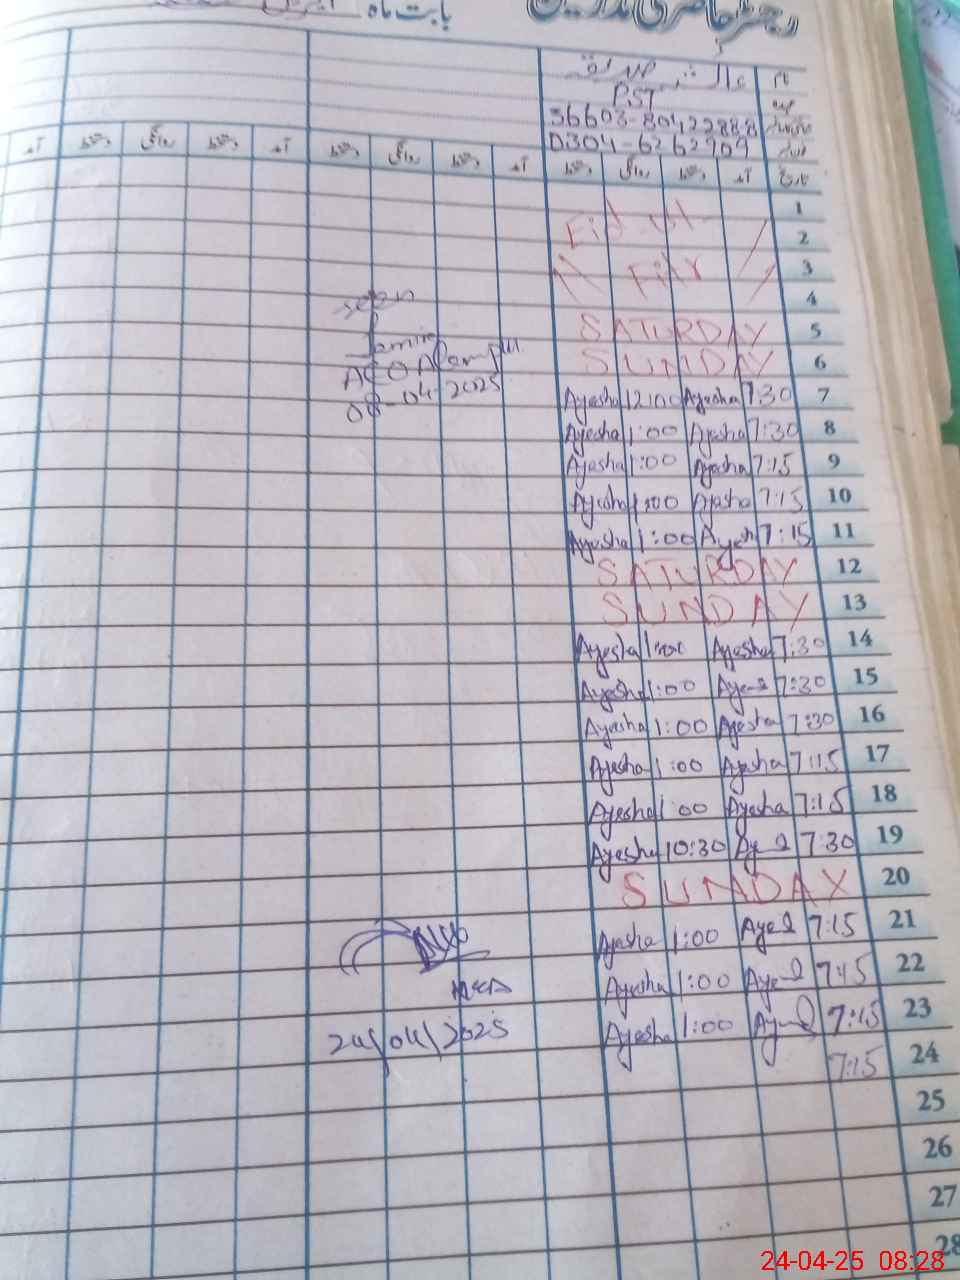 رجسٹر حاضری مدرسین بابت ماہ اپریل
نام عائشہ صدیقہ
عہدہ PST
36603-8042288-8
0304-6262909
تاریخ آمد دستخط روانگی دستخط آمد دستخط روانگی دستخط آمد دستخط روانگی دستخط آمد
1
2 Eid-ul-
3 Fitr
4
5 SATURDAY
6 SUNDAY
7 7:30 Ayesha 12:00 Ayesha
8 7:30 Ayesha 1:00 Ayesha
9 7:15 Ayesha 1:00 Ayesha
10 7:15 Ayesha 1:00 Ayesha
11 7:15 Ayesh 1:00 Ayesha
12 SATURDAY
13 SUNDAY
14 7:30 Ayesha 1:00 Ayesha
15 7:30 1:00 Ayesha
16 7:30 Ayesha 1:00 Ayesha
17 7:15 Ayesha 1:00 Ayesha
18 7:15 Ayesha 1:00 Ayesha
19 7:30 10:30 Ayesha
20 SUNDAY
21 7:15 1:00 Ayesha
22 7:15 1:00 Ayesha
23 7:15 1:00 Ayesha
24 7:15
25
26
27
28
seen
AEO
08-04-2025
24/04/2025
24-04-25 08:28